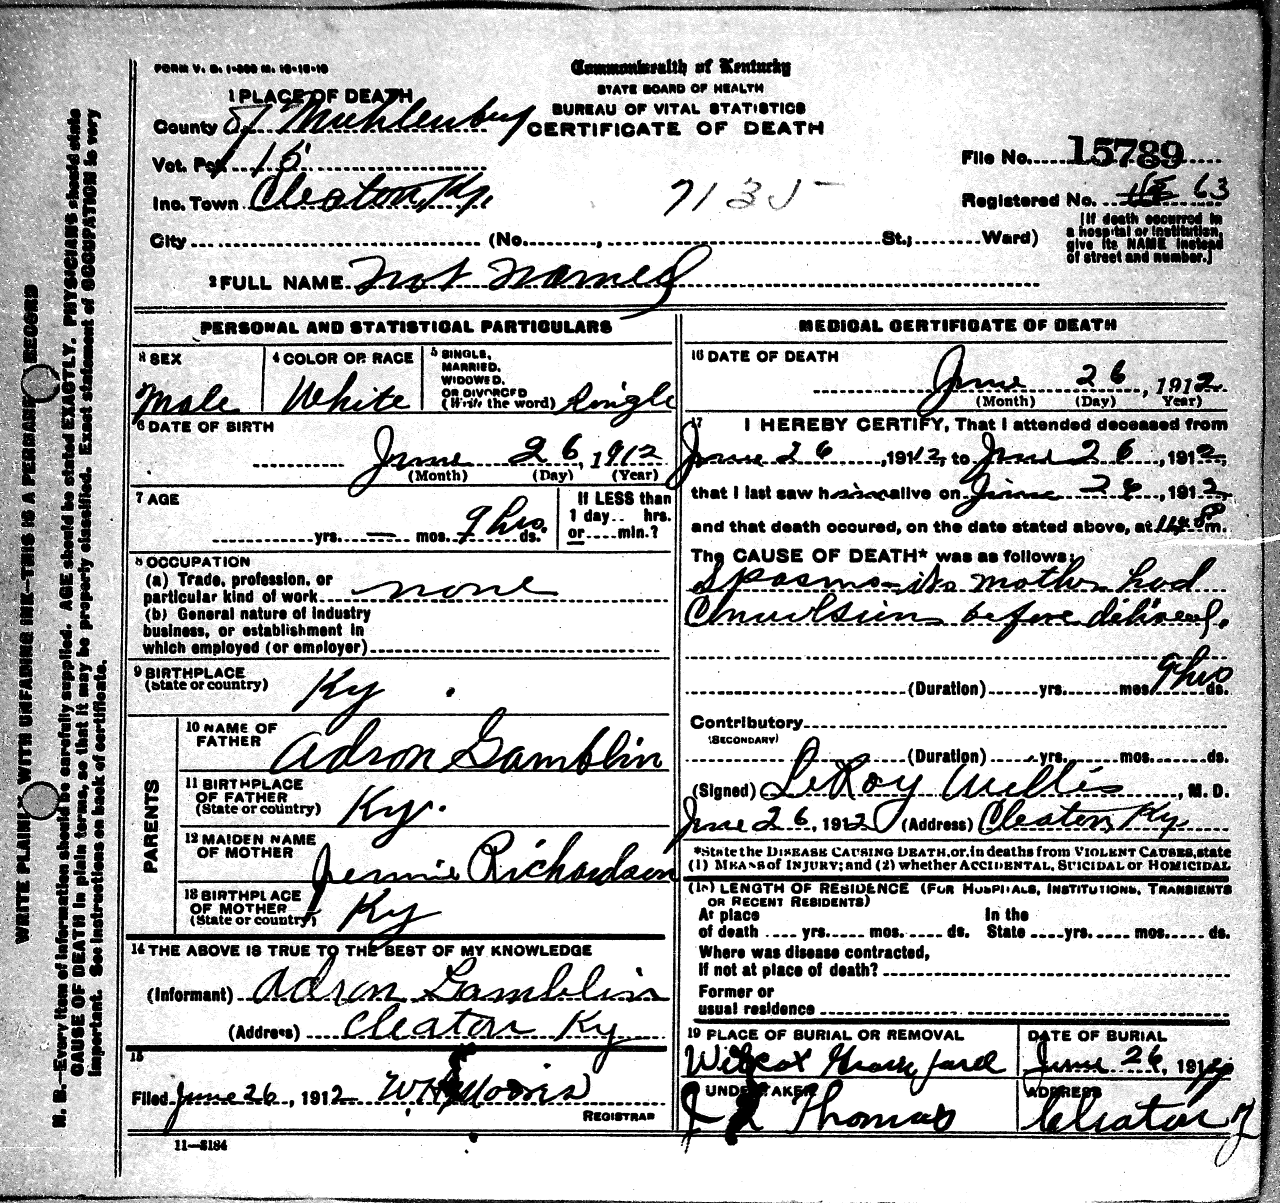 FORM V. S. 1-300 M. 10-10-10
Commonwealth of Kentucky
STATE BOARD OF HEALTH
BUREAU OF VITAL STATISTICS
CERTIFICATE OF DEATH
1 PLACE OF DEATH
County 87 Muhlenburg
Vot. Pct 15
Inc. Town Cleaton, Ky.
City (No. , St.; Ward)
File No. 15789
Registered No. 63
[If death occurred in a hospital or institution, give its NAME instead of street and number.]
7135
2 FULL NAME Not Named
PERSONAL AND STATISTICAL PARTICULARS
3 SEX Male
4 COLOR OR RACE White
5 SINGLE, MARRIED, WIDOWED, OR DIVORCED (Write the word) Single
6 DATE OF BIRTH
June 26, 1912
(Month) (Day) (Year)
7 AGE
yrs. — mos. 9 hrs. ds.
If LESS than 1 day.. hrs. or....min.?
8 OCCUPATION
(a) Trade, profession, or particular kind of work none
(b) General nature of industry business, or establishment in which employed (or employer)
9 BIRTHPLACE
(State or country) Ky.
PARENTS
10 NAME OF FATHER Adron Gamblin
11 BIRTHPLACE OF FATHER (State or country) Ky.
12 MAIDEN NAME OF MOTHER Jennie Richardson
13 BIRTHPLACE OF MOTHER (State or country) Ky
14 THE ABOVE IS TRUE TO THE BEST OF MY KNOWLEDGE
(Informant) Adron Gamblin
(Address) Cleaton Ky
15
Filed June 26, 1912 W H Morris
REGISTRAR
11—3184
MEDICAL CERTIFICATE OF DEATH
16 DATE OF DEATH
June 26, 1912
(Month) (Day) Year)
17 I HEREBY CERTIFY, That I attended deceased from
June 26, 1912, to June 26, 1912,
that I last saw him alive on June 26, 1912,
and that death occured, on the date stated above, at m.
The CAUSE OF DEATH* was as follows:
Spasms—its mother had
Convulsions before delivery.
(Duration) yrs. mos 9 hrs ds.
Contributory
(SECONDARY)
(Duration) yrs. mos. ds.
(Signed) LeRoy Willis, M. D.
June 26, 1912 (Address) Cleaton, Ky
*State the DISEASE CAUSING DEATH, or, in deaths from VIOLENT CAUSES, state
(1) MEANS of INJURY; and (2) whether ACCIDENTAL, SUICIDAL or HOMICIDAL
(18) LENGTH OF RESIDENCE (FOR HOSPITALS, INSTITUTIONS, TRANSIENTS
OR RECENT RESIDENTS)
At place In the
of death .... yrs. mos. ds. State .... yrs. mos. ds.
Where was disease contracted,
If not at place of death?
Former or
usual residence
19 PLACE OF BURIAL OR REMOVAL
Wilcox Grave yard
DATE OF BURIAL
June 26, 1912
UNDERTAKER
J Thomas
ADDRESS
Cleaton
WRITE PLAINLY WITH UNFADING INK—THIS IS A PERMANENT RECORD
N. B.—Every item of information should be carefully supplied. AGE should be stated EXACTLY. PHYSICIANS should state
CAUSE OF DEATH in plain terms, so that it may be properly classified. Exact statement of OCCUPATION is very
important. See instructions on back of certificate.